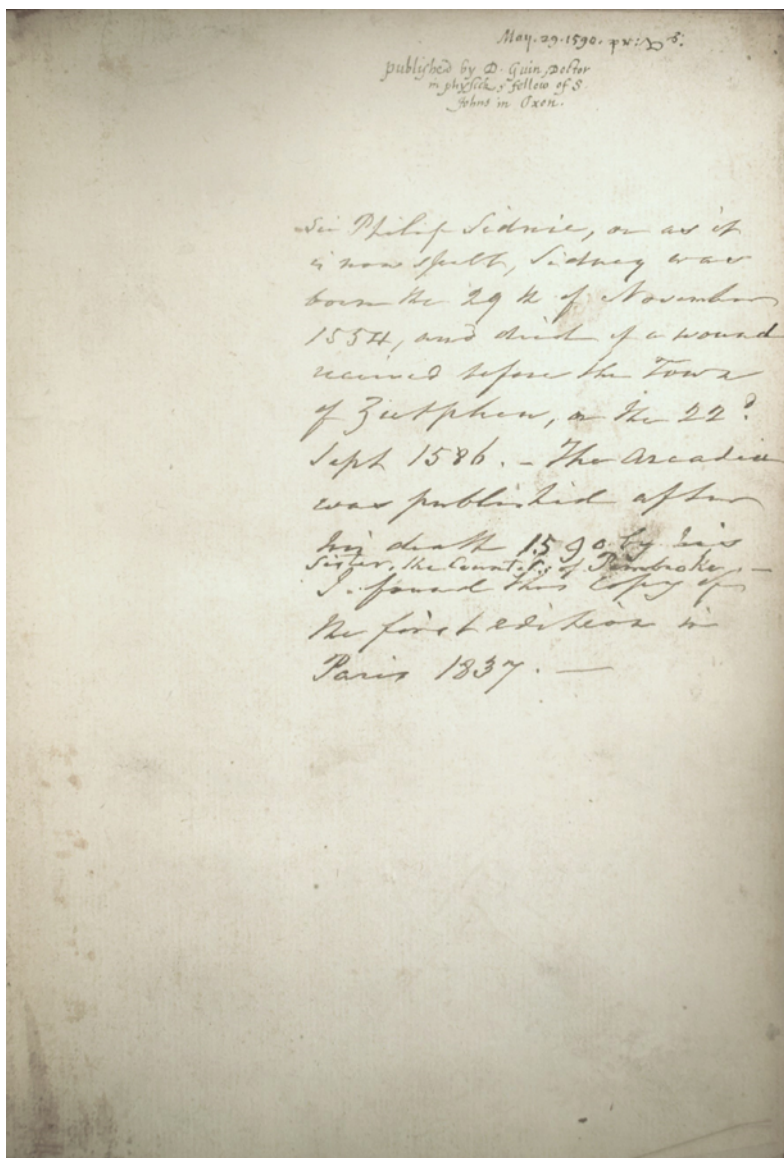 May. 29. 1590. pr:
published by D. Guin Doctor
in physick & fellow of S.
Johns in Oxon.
Sir Philip Sidnie, or as it
is now spelt, Sidney was
born the 29th of November
1554, and died of a wound
received before the Town
of Zutphen, on the 22d
Sept 1586. – The Arcadia
was published after
his death 1590 by his
sister, the Countess of Pembroke –
I found this Copy of
the first edition in
Paris 1837. —